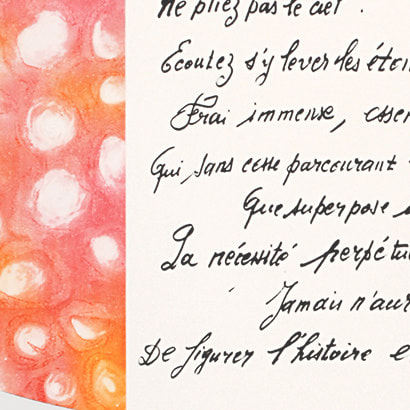 Ne pliez pas le ciel.
Ecoutez s'y lever les étoi
Frai immense, essen
Qui, sans cesse parcourant
Que superpose
La nécessité perpétu
Jamais n'aur
De figurer l'histoire e